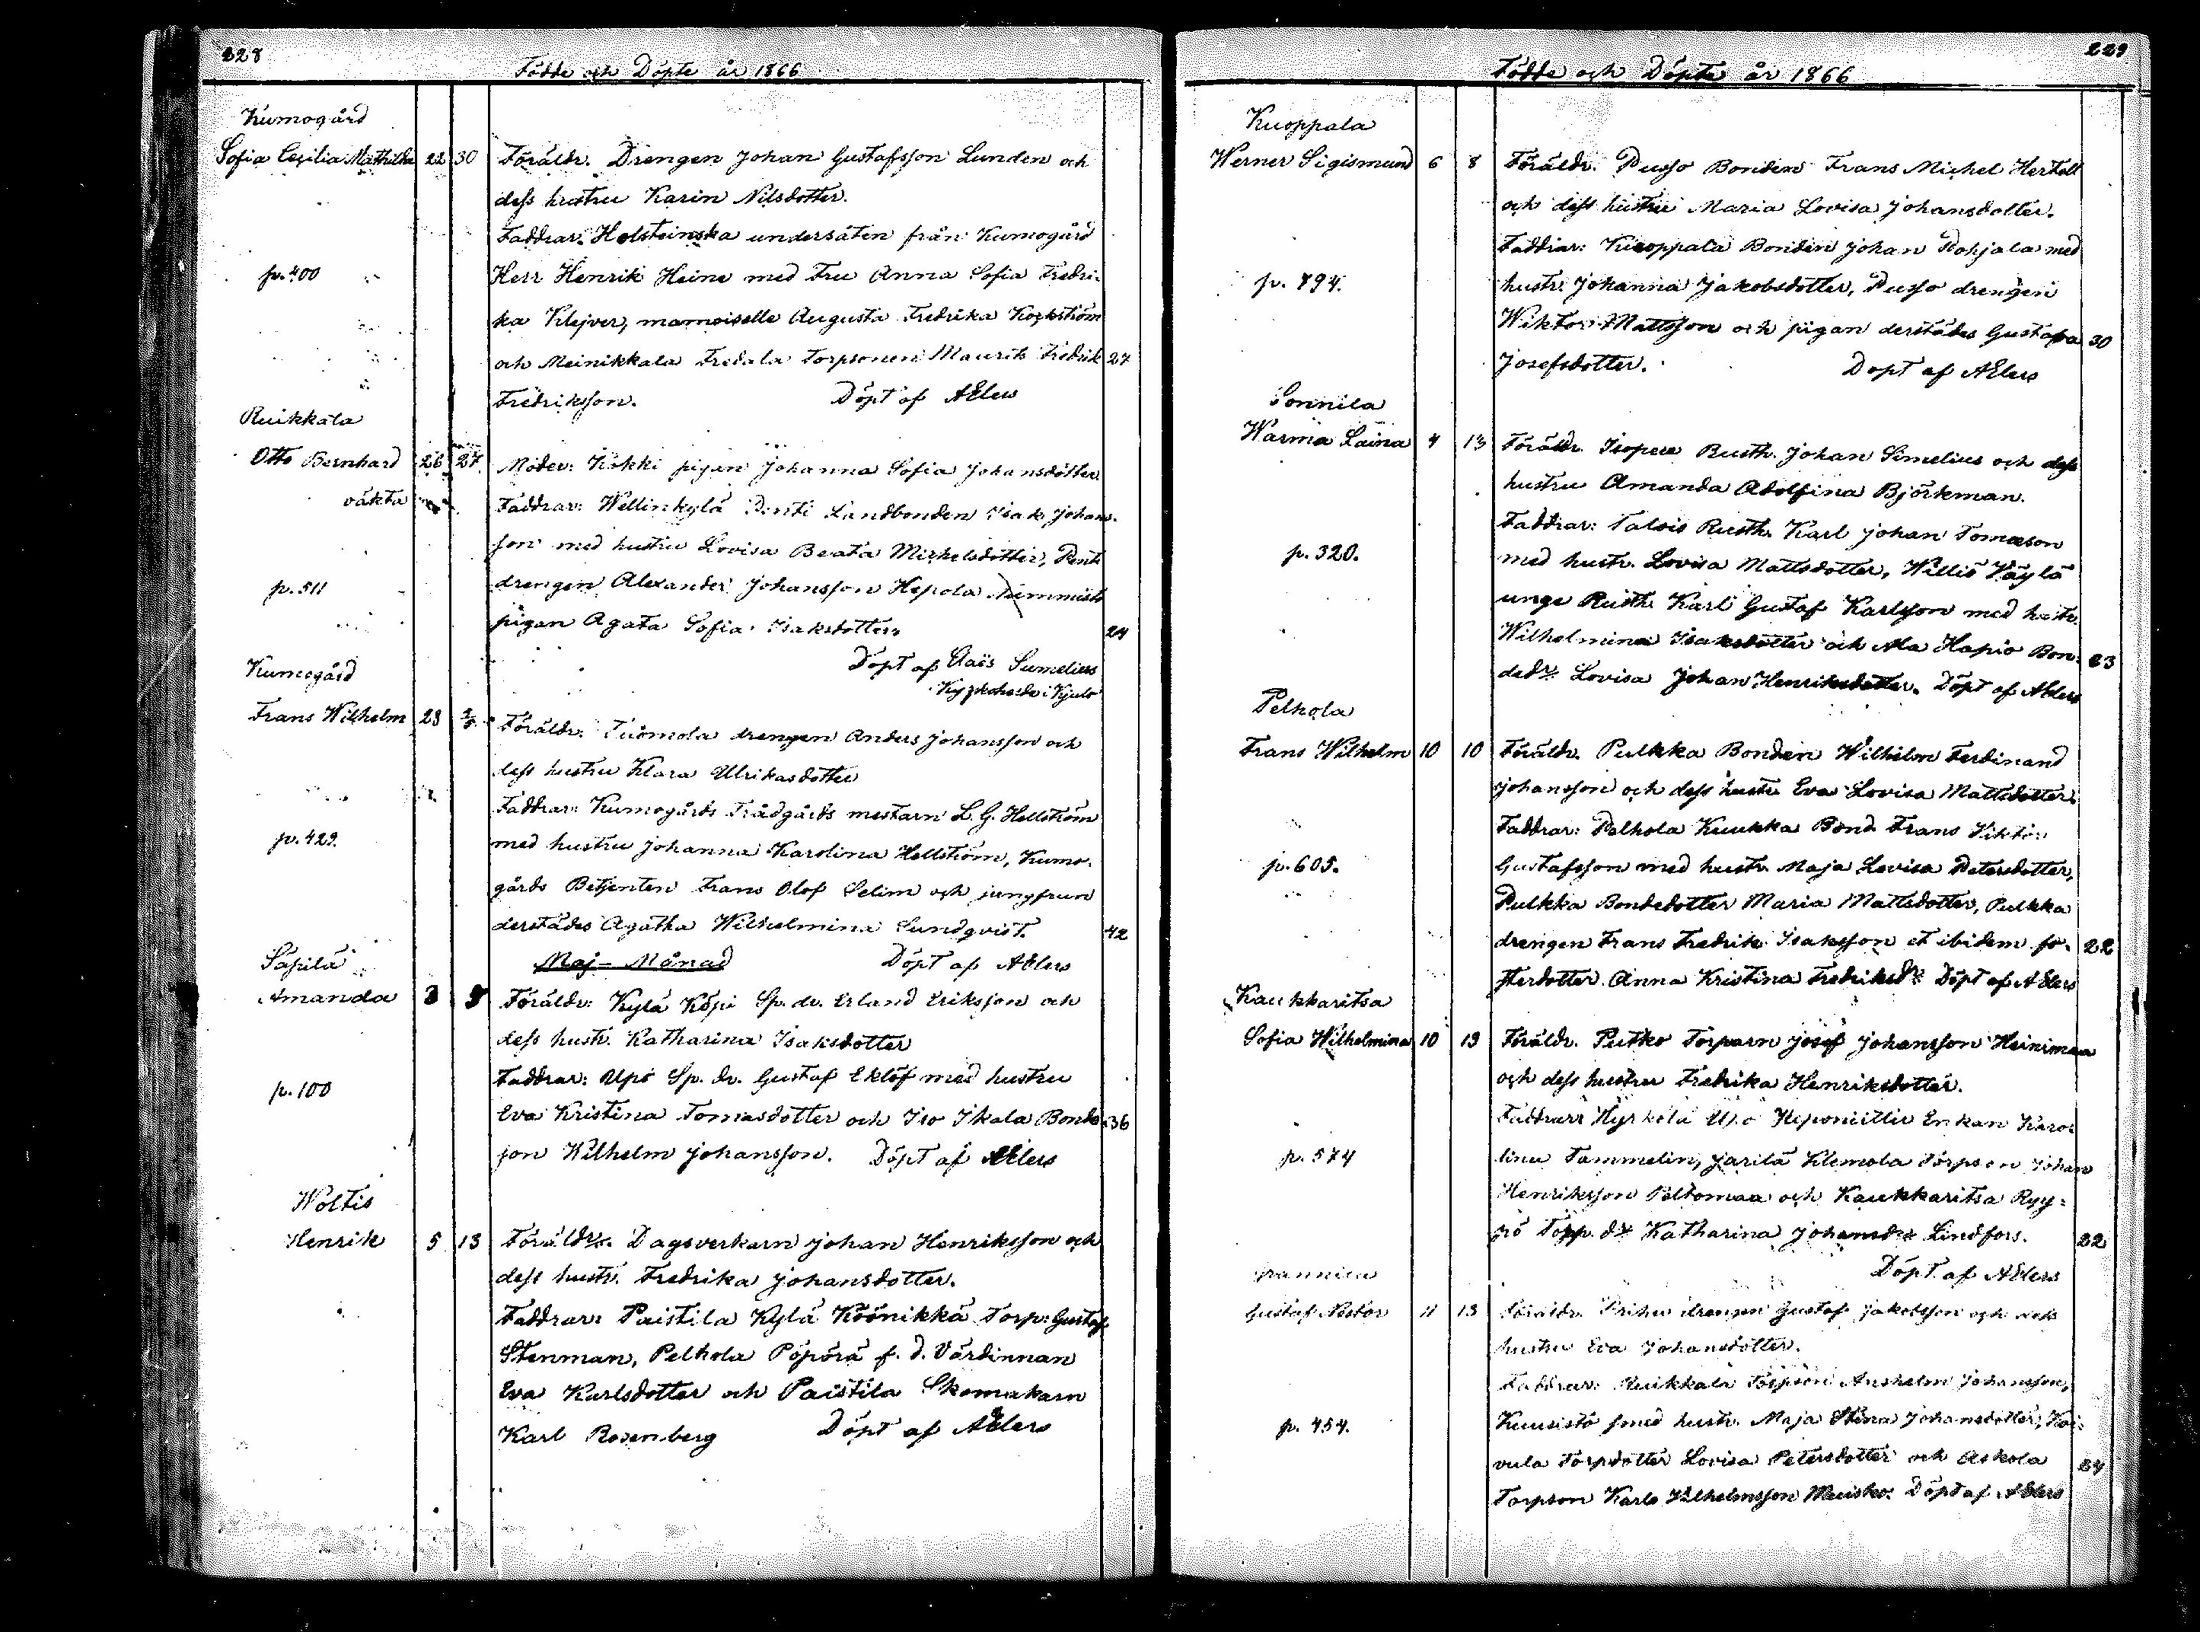 228
Födde och Döpte år 1866
Kumogård
Sofia Cecilia Mathilda 22 30 Föräldr. Drengen Johan Gustafsson Lunden och
dess hustru Karin Nilsdotter.
Faddrar. Holsteinska undersåten från Kumogård
p. 400 Herr Henrik Heine med Fru Anna Sofia Fredri-
ka Klejver, mamoiselle Augusta Fredrika Kockström
och Meinikkala Fredala Torpsonen Maurits Fredrik 27
Fredriksson. Döpt af AElers
Ruikkala
Otto Bernhard 26 27 Moder: Kokki pigan Johanna Sofia Johansdotter
oäkta Faddrar: Wellinkylä Pentti Landbonden Isak Johans-
son med hustru Lovisa Beata Michelsdotter, Pentti
p. 511 drengen Alexander Johansson Hepola Nummisto
pigan Agata Sofia Isaksdotter. 24
Döpt af Claës Sumelius
Kyrkoherde i Kjulo
Kumogård
Frans Wilhelm 23 Föräldr. Tuomola drengen Anders Johansson och
dess hustru Klara Ulrikasdotter
Faddrar: Kumogårds Trädgårds mestarn L. G. Hellström
p. 429. med hustru Johanna Karolina Hellström, Kumo-
gårds Betjenten Frans Olof Selim och jungfrun
derstädes Agatha Wilhelmina Sundqvist. 42
Maj - Månad Döpt af AElers
Säpilä
Amanda 3 5 Föräldr: Kylä Köpi Sp. dr. Erland Eriksson och
dess hustr. Katharina Isaksdotter
Faddrar: Upo Sp. dr. Gustaf Eklöf med hustru
p. 100 Eva Kristina Tomasdotter och Iso Ikala Bonde 36
son Wilhelm Johansson. Döpt af AElers
Woltis
Henrik 5 13 Föräldr. Dagsverkarn Johan Henriksson och
dess hustr. Fredrika Johansdotter.
Faddrar: Paistila Kylä Köönikkä Torp: Gustaf
Stenman, Pelhola Pöpörä f. d. Värdinnan
Eva Karlsdotter och Paistila Skomakarn
Karl Rosenberg Döpt af AElers
229
Födde och Döpte år 1866
Kuoppala
Werner Sigismund 6 8 Föräldr. Pusso Bonden Frans Michel Hertell
och dess hustru Maria Lovisa Johansdotter.
Faddrar: Kuoppala Bonden Johan Pohjala med
p. 794. hustr. Johanna Jakobsdotter, Pusso drengen
Wiktor Mattsson och pigan derstädes Gustafva 30
Josefsdotter. Döpt af AElers
Sonnila
Warma Laina 4 13 Föräldr. Isopere Rusth. Johan Simelius och dess
hustru Amanda Adolfina Björkman.
Faddrar: Talvis Rusth. Karl Johan Tomasson
p. 320. med hustr. Lovisa Mattsdotter, Williö Käylä
unge Rusth. Karl Gustaf Karlsson med hustr.
Wilhelmina Isaksdotter och Ala Hapio Bon- 23
dedr. Lovisa Johan Henriksdotter. Döpt af AElers
Pelhola
Frans Wilhelm 10 10 Föräldr. Pulkka Bonden Wilhelm Ferdinand
Johansson och dess hustru Eva Lovisa Mattsdotter.
Faddrar: Pelhola Kuukka Bond. Frans Viktor
p. 605. Gustafsson med hustr. Maja Lovisa Petersdotter,
Pulkka Bondedotter Maria Mattsdotter, Pulkka
drengen Frans Fredrik Isaksson et ibidem fo- 22
sterdotter Anna Kristina Fredriksdr. Döpt af AElers
Kaukkaritsa
Sofia Wilhelmina 10 13 Föräldr. Putko Torparn Josef Johansson Heinimaa
och dess hustru Fredrika Henriksdotter.
Faddrar: Kyrkölä Upo Enkan Karo-
p. 574 lina Tammelin, Jarilä Klemola Torpson Johan
Henriksson Peltomaa och Kaukkaritsa Ryy-
pö Torp. dr. Katharina Johansdr Lindfors. 22
Döpt af AElers
Gustaf Nestor 11 13 Föräldr. drengen Gustaf Jakobsson och dess
hustru Eva Johansdotter.
Faddrar: Ruikkala Torpson Anshelm Johansson,
p. 454. Kuusistö med hustr. Maja Stina Johansdotter, Koi-
vula Torpdotter Lovisa Petersdotter och Askola 24
Torpson Karl Wilhelmsson Döpt af AElers